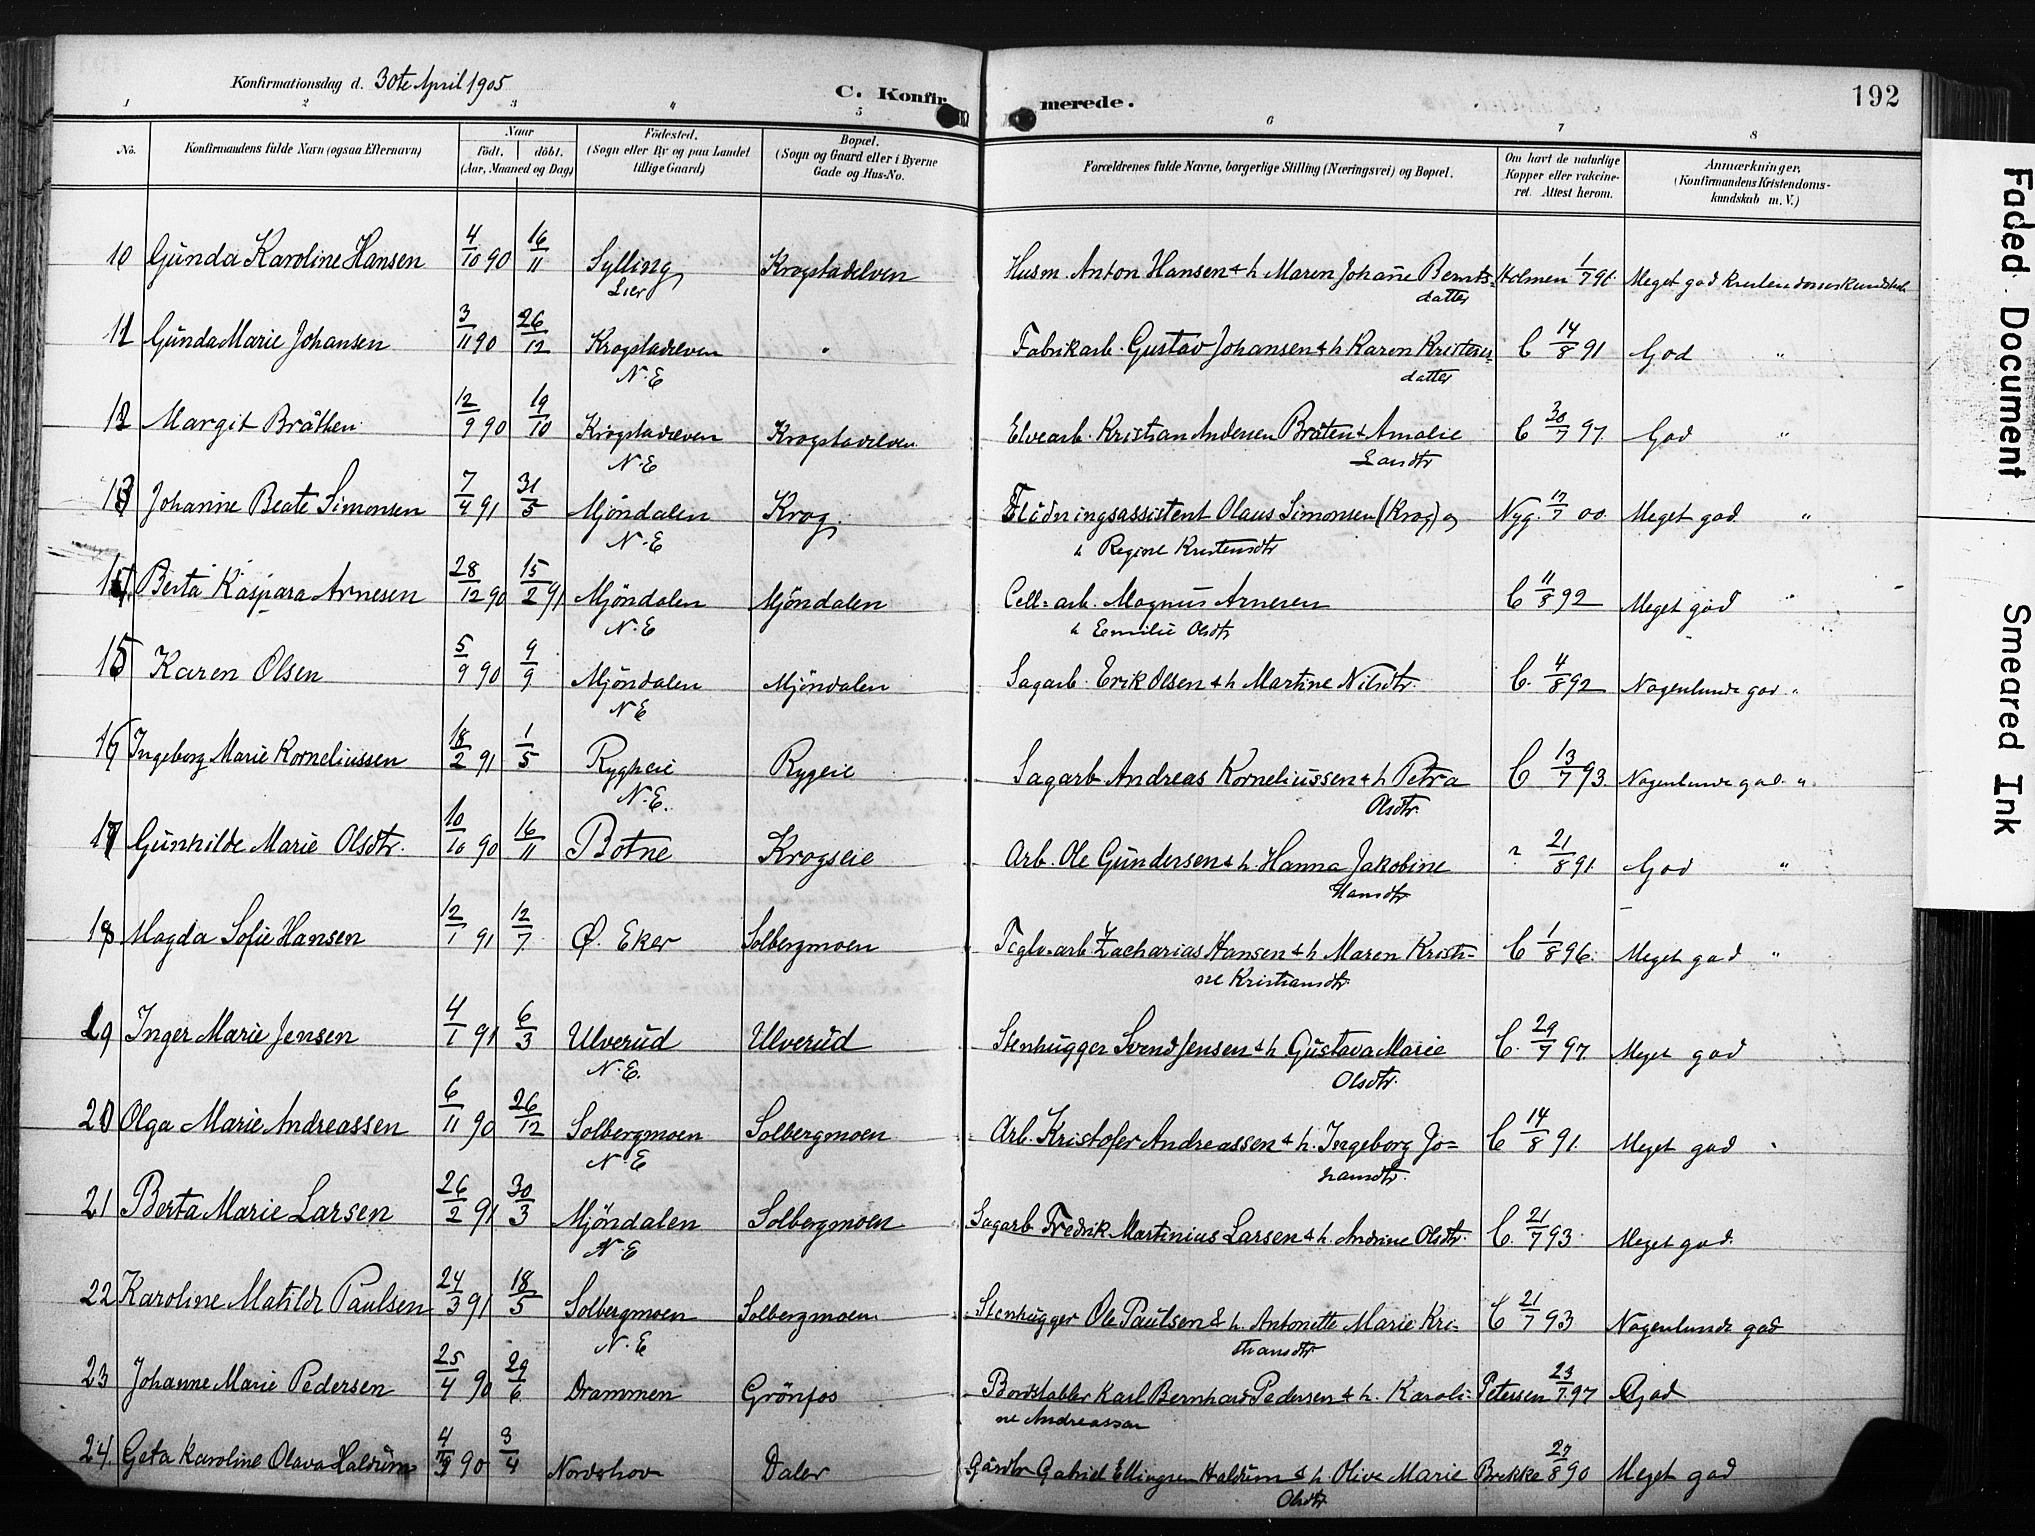 Konfirmationsdag d. 30te April 1905
C. Konfir
merede.
192
1 2 3 " 5 6 7 8
No.
Konfirmandens fulde Navn (ogsaa Efternavn)
Naar
födt. döbt.
(Aar, Maaned og Dag)
Födested.
(Sogn eller By og paa Landet
tillige Gaard)
Bopæl.
(Sogn og Gaard eller i Byerne
Gade og Hus-No.
Forældrenes fulde Navne, borgerlige Stilling (Næringsvei) og Bopæl.
Om havt de naturlige
Kopper eller vakcine-
ret. Attest herom.
Anmærkninger.
(Konfirmandens Kristendoms-
kundskab m. V.)
10 Gunda Karoline Hansen 4/10 90 16/11 Sylling Krogstadelven Husm. Anton Hansen & h Maren Johanne Bernts- Holmen 1/7 91. Meget god kristendomskundskab
Lier datter
11 Gunda Marie Johansen 3/11 90 26/12 Krogstadelven " Fabrikarb. Gustav Johansen & h Karen Kristens- C 14/8 91 God "
N. E datter
12 Margit Bråthen 12/9 90 19/10 Krogstadelven Krogstadelven Elvearb. Kristian Andersen Bråten & Amalie C 30/7 97. God "
N. E Larsdtr
13 Johanne Beate Simonsen 7/4 91 31/5 Mjöndalen Krog. Flödningsassistent Olaus Simonsen (Krog) og Nyg. 17/7 00. Meget god. "
N. E h Regine Kristensdtr
14 Berta Kaspara Arnesen 28/12 90 15/2 91 Mjöndalen Mjöndalen Cell-arb. Magnus Arnesen C 11/8 92 Meget god "
N. E h Emilie Olsdtr
15 Karen Olsen 5/9 90 9/9 Mjöndalen Mjöndalen Sagarb. Erik Olsen & h Martine Nilsdtr. C. 4/8 92 Nogenlunde god "
N E
16 Ingeborg Marie Korneliussen 18/2 91 1/5 Rygheie Rygeie Sagarb Andreas Korneliussen & h Petra C 13/7 93. Nogenlunde god. "
N. E. Olsdtr.
17 Gunhilde Marie Olsdtr. 10/10 90 16/11 Botne Krogseie Arb. Ole Gundersen & h. Hanna Jakobine ? 21/8 91. God "
Hansdtr
18 Magda Sofie Hansen 12/1 91 12/7 Ø. Eker Solbergmoen Teglv.arb Zacharias Hansen & h Maren Kristi- C 1/8 96. Meget god "
ne Kristiansdtr.
19 Inger Marie Jensen 4/1 91 6/3 Ulverud Ulverud Stenhugger Svend Jensen & h Gustava Marie C. 29/7 97. Meget god
N. E. Olsdtr.
20 Olga Marie Andreassen 6/11 90 26/12 Solbergmoen Solbergmoen Arb. Kristofer Andreassen & h. Ingeborg Jo- C 14/8 91. Meget god "
N. E hansdtr.
21 Berta Marie Larsen 26/2 91 30/3 Mjöndalen Solbergmoen Sagarb Fredrik Martinius Larsen & h. Andrine Olsdtr. C. 21/7 93. Meget god.
N. E
22 Karoline Matilde Paulsen 24/3 91 18/5 Solbergmoen Solbergmoen Stenhugger Ole Paulsen & h. Antonette Marie Kri- C 21/7 93 Nogenlunde god
N. E stiansdtr
23 Johanne Marie Pedersen 25/4 90 29/6 Drammen Grönfos Bordstabler Karl Bernhard Pedersen & h. Karoli- Petersen 23/7 97 God
ne Andreassen
24. Geta Karoline Olava Haldum 90 3/4 Nordshov Daler Gårdbr Gabriel Ellingsen Haldum & h Olive Marie Brekke 27/8 90 Meget god
Olsdtr
Faded Document
Smeared Ink